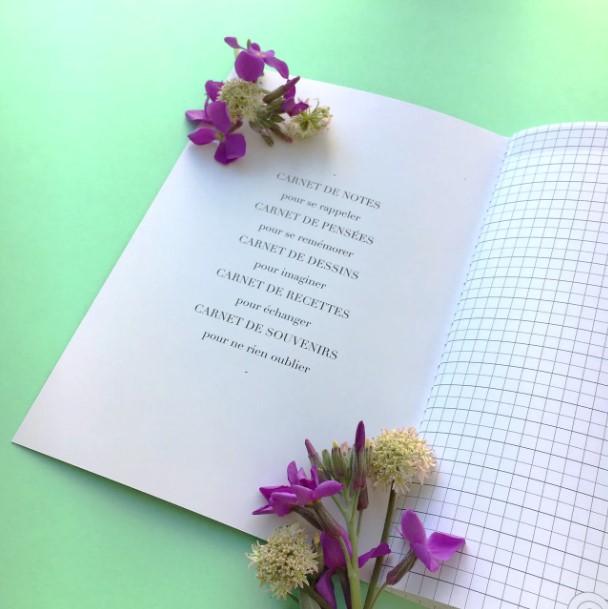 CARNET DE NOTES
pour se rappeler
CARNET DE PENSÉES
pour se remémorer
CARNET DE DESSINS
pour imaginer
CARNET DE RECETTES
pour échanger
CARNET DE SOUVENIRS
pour ne rien oublier